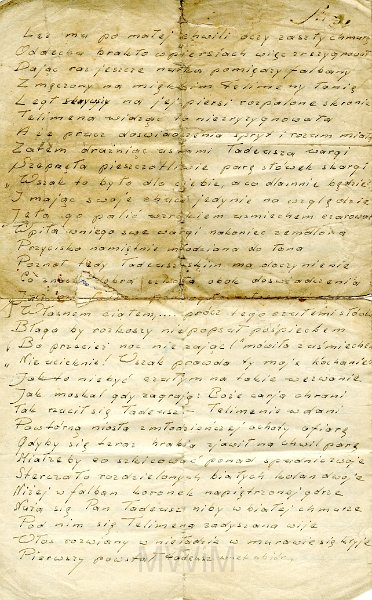 Lecz ma po małej chwili oczy zaszły chmurą
Oddechu brakło w piersiach więc zrezygnował
Dając raz jeszcze nurka pomiędzy falbany
Zmęczony na miękkim Telimeny łonie
Legł skrywszy na jej piersi rozpalone skronie
Telimena widząc to niezrezygnowała
A że prócz doświadczenia spryt i rozum miała
Zatem drażniąc ustami Tadeusza wargi
Szepnęła pieszczotliwie parę słówek skargi
„Wszak to było dla ciebie, a co dla mnie będzie"
I mając swoje chuci jedynie na względzie
Jęła go palić wzrokiem uśmiechem czarować
Wpiła w niego swe wargi nakoniec zemdlona
Przyciska namiętnie młodziana do łona
Poznał tedy Tadeusz z kim ma do czynienia
Co znaczy dobra szkoła obok doświadczenia
Własnem ciałem.... prócz tego czułemi słowy
Błaga by rozkoszy nie popsuł pośpiechem
„Bo przecież noc nie zając" (mówiła z uśmiechem
„Nie ucieknie! Wszak prawda ty moje kochanie
Jak to niebyć czułym na takie wezwanie
Jak moskal gdy zagrają: Boże carja chrani
Tak rzucił się Tadeusz - Telimenie w dani
Powtórną niosła zmłodzieńczej ochoty ofiarę
Gdyby się teraz hrabia zjawił na chwil parę
Miałżeby co szkicować ponad spodnie dwoje
Sterczało rozdzielonych białych kolan dwoje
Niżej w falban koronek napiętrzonej górze
Nurza się Pan Tadeusz niby w białej chmurze
Pod nim się Telimena zadyszana wije
Włos rozwiany w nieładzie w murawie się kryje
Pierwszy powstał Tadeusz
MWM